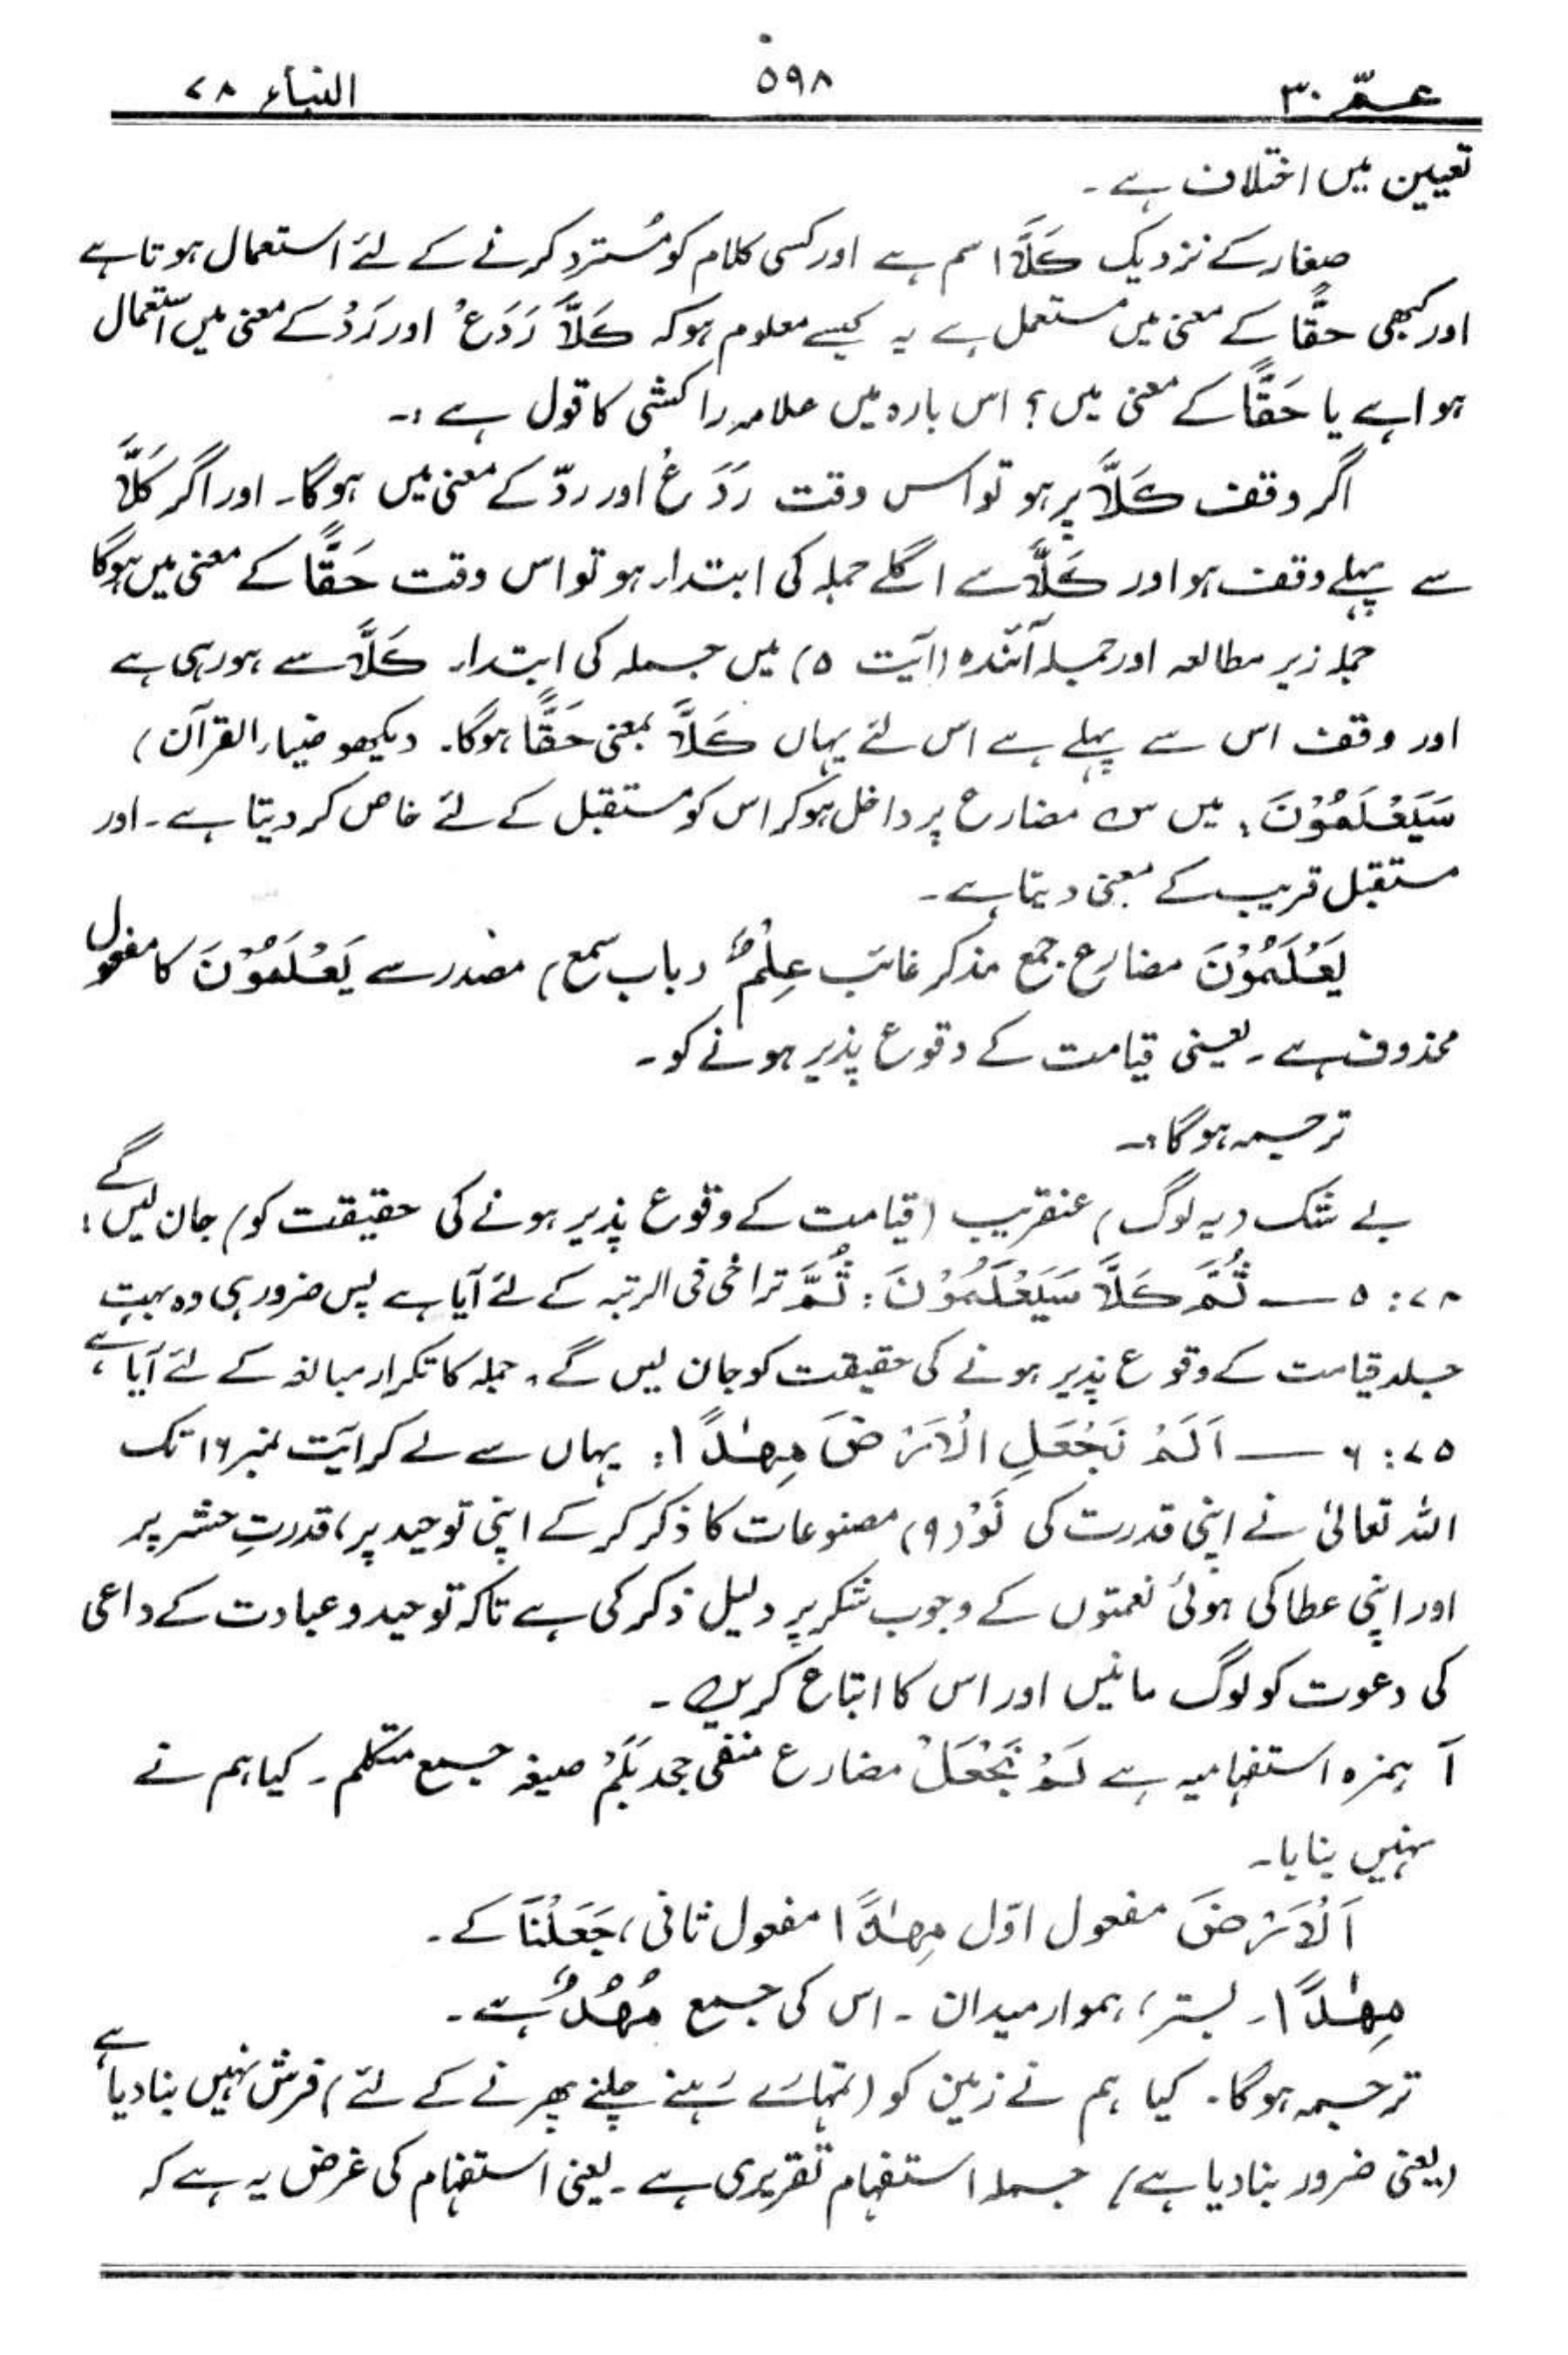 عمّ ۳۰ ۵۹۸ النباء ۷۸
تعیین میں اختلاف ہے۔
صغار کے نزدیک کَلَّا اسم ہے اور کسی کلام کو مُسترد کرنے کے لئے استعمال ہوتا ہے
اور کبھی حقًّا کے معنی میں مستعمل ہے یہ کیسے معلوم ہو کہ کَلَّا رَدَعٌ اور رَدٌّ کے معنی میں استعمال
ہوا ہے یا حَقًّا کے معنی میں؟ اس بارہ میں علامہ راکشی کا قول ہے :۔
اگر وقف کَلَّا پر ہو تو اس وقت رَدَعٌ اور ردّ کے معنی میں ہوگا۔ اور اگر کَلَّا
سے پہلے وقف ہو اور کَلَّا سے اگلے جملہ کی ابتدار ہو تو اس وقت حَقًّا کے معنی میں ہوگا
جملہ زیر مطالعہ اور جملہ آئندہ (آیَت ۵) میں جملہ کی ابتدار کَلَّا سے ہو رہی ہے
اور وقف اس سے پہلے ہے اس لئے یہاں کَلَّا بمعنی حَقًّا ہوگا۔ دیکھو ضیار القرآن)
سَیَعْلَمُوْنَ: میں س مضارع پر داخل ہو کر اس کو مستقبل کے لئے خاص کر دیتا ہے۔ اور
مستقبل قریب کے معنی دیتا ہے۔
یَعْلَمُوْنَ مضارع جمع مذکر غائب عِلْمٌ (باب سمع) مصدر سے یَعْلَمُوْنَ کا مفعول
محذوف ہے۔ یعنی قیامت کے وقوع پذیر ہونے کو۔
ترجمہ ہوگا:۔
بے شک (یہ لوگ) عنقریب (قیامت کے وقوع پذیر ہونے کی حقیقت کو) جان لیں گے:
۷۸: ۵ — ثُمَّ کَلَّا سَیَعْلَمُوْنَ: ثُمَّ تراخی فی الرتبہ کے لئے آیا ہے پس ضرور ہی وہ بہت
جلد قیامت کے وقوع پذیر ہونے کی حقیقت کو جان لیں گے۔ جملہ کا تکرار مبالغہ کے لئے آیا ہے،
۷۵: ۶ — اَلَمْ نَجْعَلِ الْاَرْضَ مِهٰدًا: یہاں سے لے کر آیَت نمبر ۱۶ تک
اللہ تعالیٰ نے اپنی قدرت کی نَوْ (۹) مصنوعات کا ذکر کرکے اپنی توحید پر، قدرتِ حشر پر
اور اپنی عطا کی ہوئی نعمتوں کے وجوب شکر پر دلیل ذکر کی ہے تاکہ توحید و عبادت کے داعی
کی دعوت کو لوگ مانیں اور اس کا اتباع کریں۔
أَ ہمزہ استفہامیہ ہے لَمْ نَجْعَلْ مضارع منفی جحد بَلَمْ صیغہ جمع متکلم۔ کیا ہم نے
نہیں بنایا۔
اَلْاَرْضَ مفعول اوّل مِهٰدًا مفعول ثانی، جَعَلْنَا کے۔
مِهٰدًا۔ بستر، ہموار میدان۔ اس کی جمع مُهُدٌ ہے۔
ترجمہ ہوگا۔ کیا ہم نے زمین کو (تمہارَے رَہنے چلنے پھرنے کے لئے) فرش نہیں بنا دیا ہے
(یعنی ضرور بنا دیا ہے) جملہ استفہام تقریری ہے۔ یعنی استفہام کی غرض یہ ہے کہ